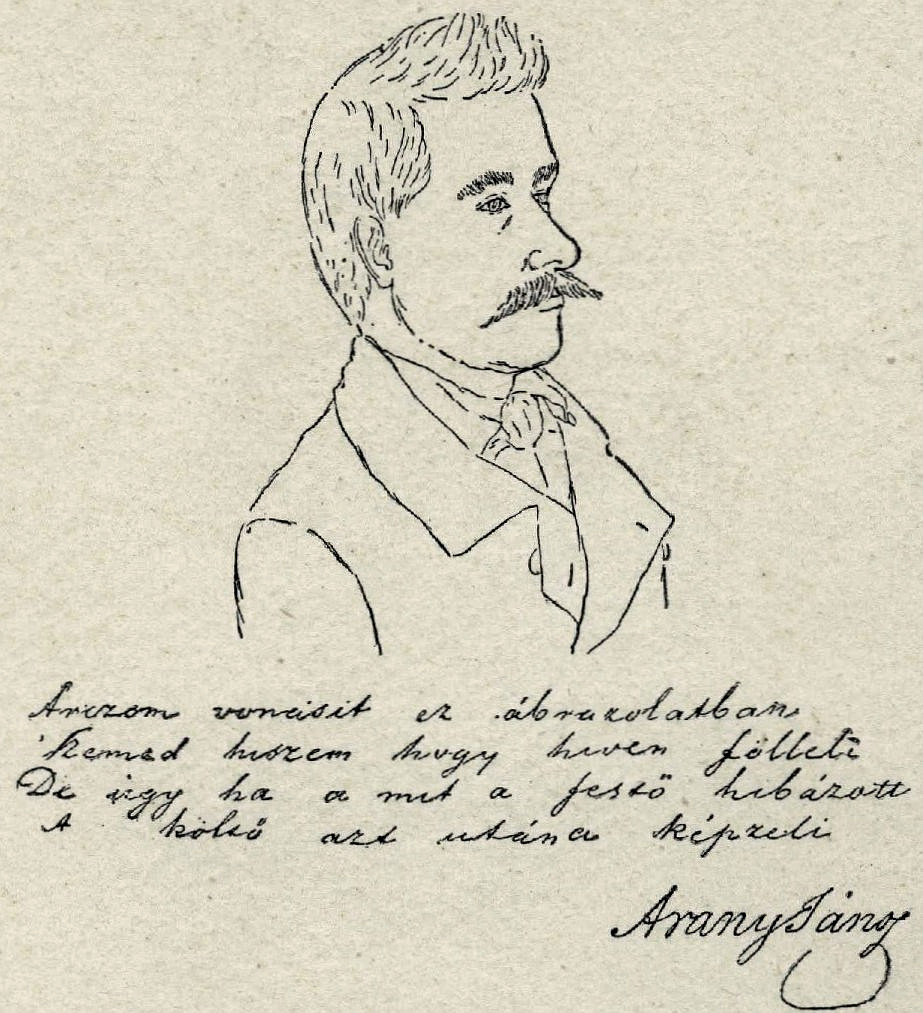 Arczom vonásit ez ábrázolatban
Szemed hiszem hogy hiven fölleli
De ugy ha a mit a festő hibázott
A költő azt utána képzeli
Arany János